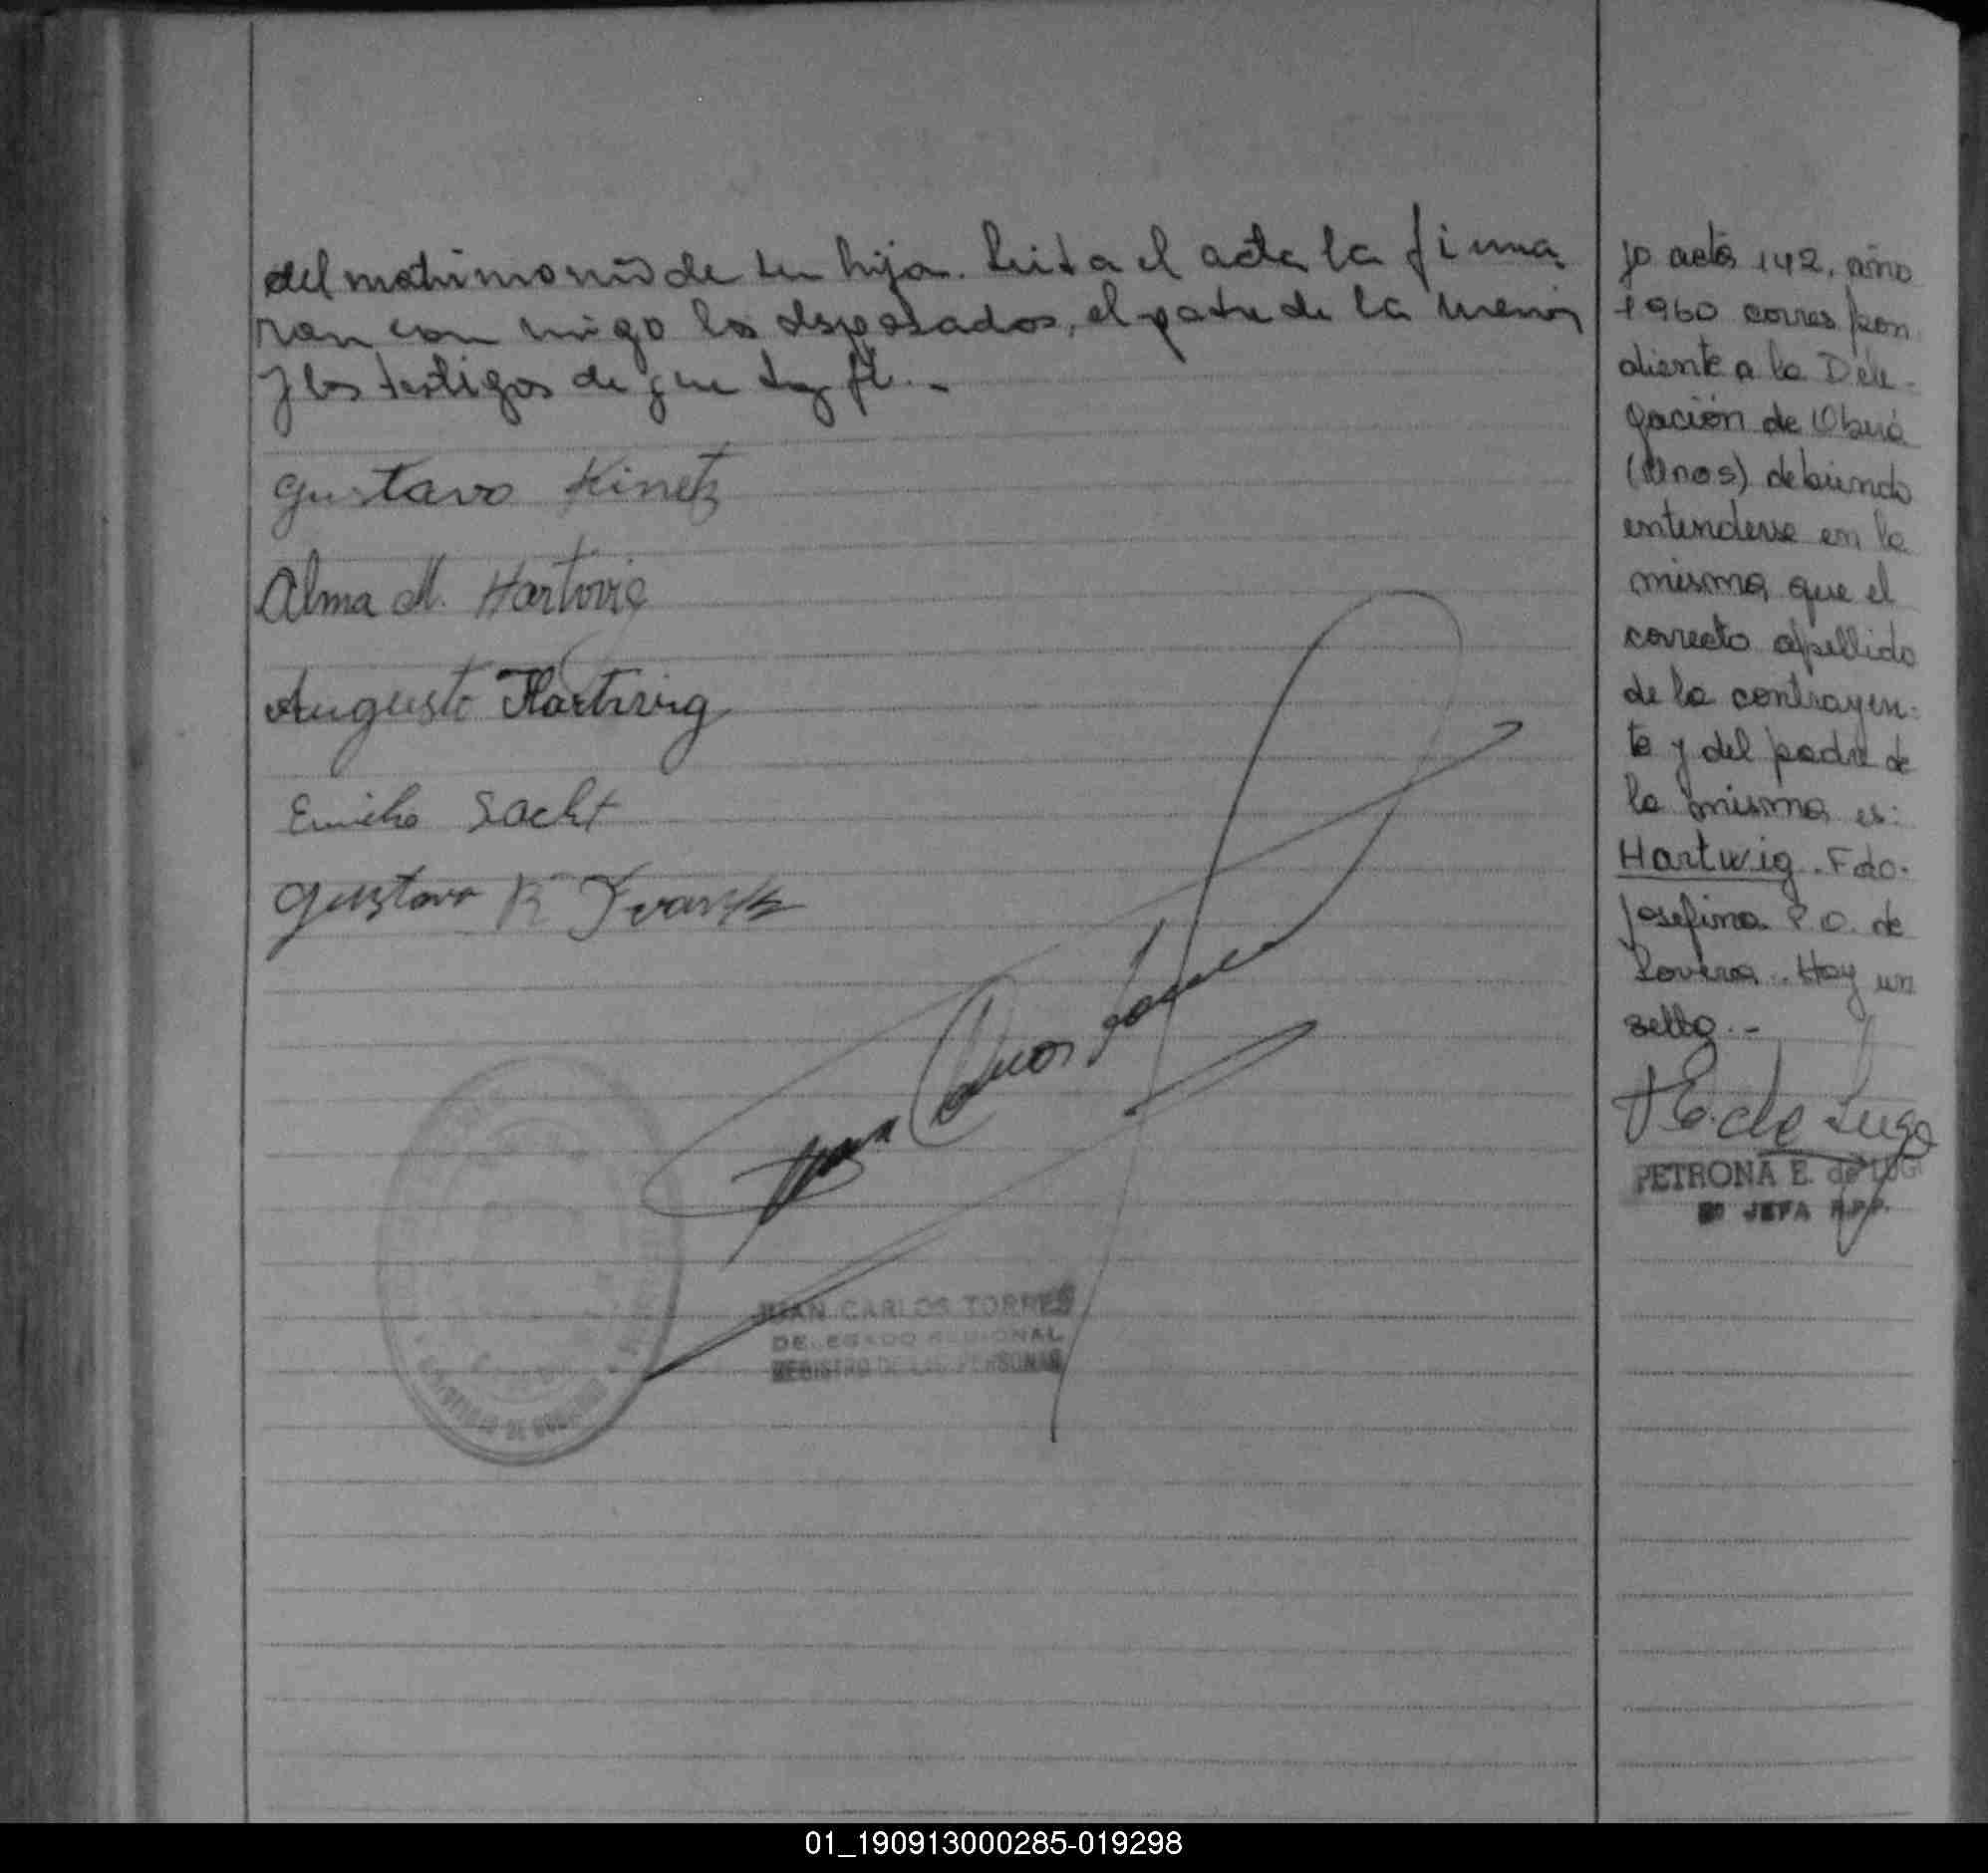 del matrimonio de su hija. Leida el acta la firma
ron con migo los desposados, el padre de la menor
y los testigos de que doy fé. -
Gustavo Kinetz
Alma M. Hartvig
Augusto Hartwig
Emilio Sacht
Gustavo R
Juan Carlos Torres
JUAN CARLOS TORRES
DELEGADO REGIONAL
REGISTRO DE LAS PERSONAS
jo acta 142, año
1960 correspon
diente a la Dele-
gación de Oberá
(Mnes) debiendo
entenderse en la
misma que el
correcto apellido
de la contrayen-
te y del padre de
la misma es:
Hartwig. Fdo.
Josefina P. O. de
Lovera. Hay un
sello. -
P E. de Lugo
PETRONA E. de LUGO
JEFA R.P.P.
01_190913000285-019298